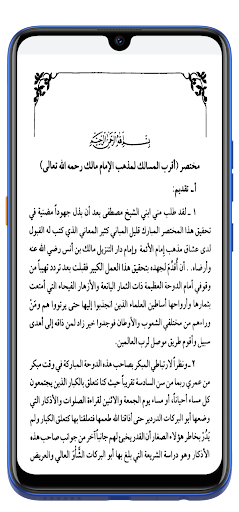 بسم الله الرحمن الرحيم
مختصر (أقرب المسالك لمذهب الإمام مالك رحمه الله تعالى)
أ ـ تقديم:
١ ـ لقد طلب مني ابني الشيخ مصطفى بعد أن بذل جهوداً مضنية في
تحقيق هذا المختصر المبارك قليل المباني كثير المعاني الذي كتب له القبول
لدى عشاق مذهب إمام الأئمة وإمام دار التنزيل مالك بن أنس رضي الله عنه
وأرضاه.. أن أُقدِّم لجهده بتحقيق هذا العمل الكبير فقبلت بعد تردد تهيباً من
وقوفي أمام الدوحة العظيمة ذات الثمار اليانعة والأزهار الفيحاء التي أمتعت
بثمارها وأرواحها أساطين العلماء الذين انجذبوا إليها حتى يرتووا هم ومَنْ
وراءهم من مختلفي الشعوب والأوطان فوجدوا خير زاد لمن ذاقه إلى أهدى
سبيل وأقوم طريق موصل لرب العالمين.
٢ ـ ونظراً لارتباطي المبكر بصاحب هذه الدوحة المباركة في وقت مبكر
من عمري ربما من سن السادسة تقريباً حيث كنا نتعلق بالكبار الذين يجتمعون
كل مساء أحياناً، أو مساء يوم الجمعة والاثنين لقراءة الصلوات والأذكار التي
وضعها أبو البركات الدردير حتى أذاقنا الله طعمها فتعلقنا بها كتعلق الكبار ولم
يَدُرْ بخاطر هؤلاء الصغار أن القدر يخبئ لهم جانباً آخر من جوانب صاحب هذه
الأذكار وهو دراسة الشريعة التي بلغ بها أبو البركات الشَّأوَ العالي والعريض